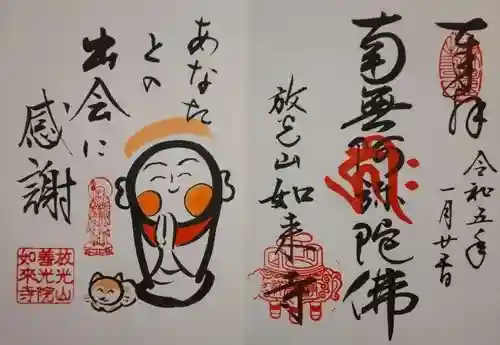 奉拝
令和五年
一月廿一日
南無阿弥陀佛
放光山如来寺
あなた
との
出会に
感謝
放光山
善光院
如來寺